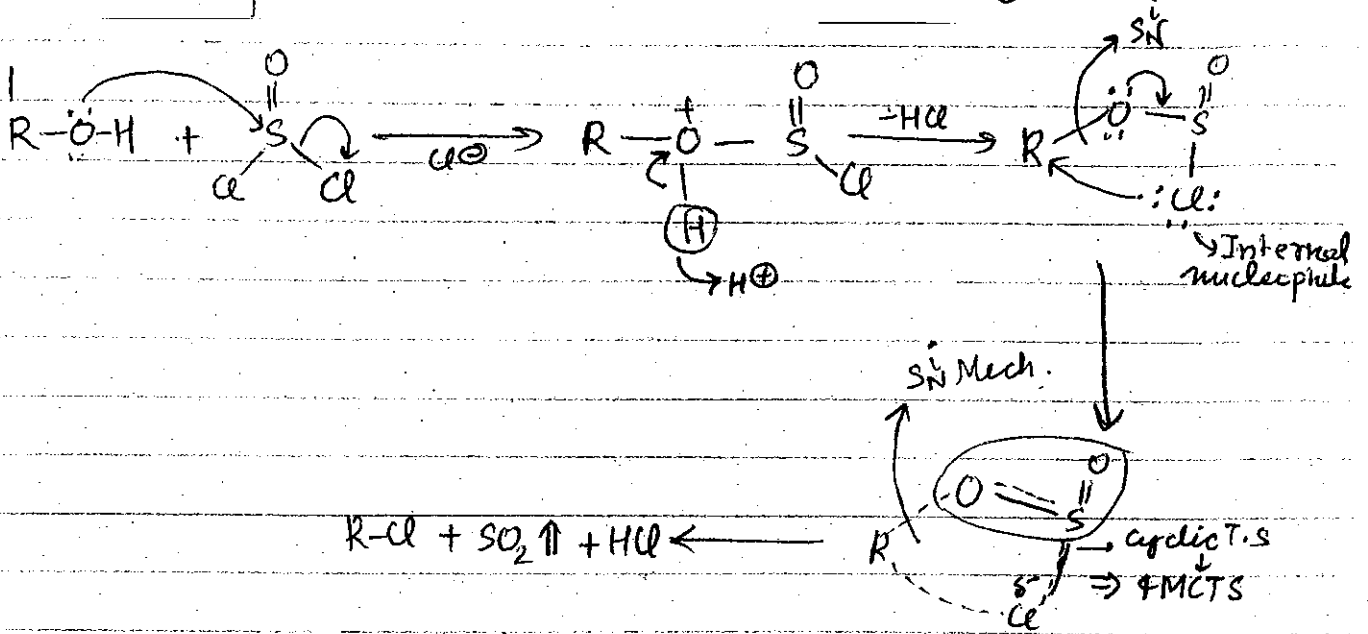 R–Ö–H + O=S(Cl)Cl → Cl⊖ R–O⁺(H)–S(=O)Cl –HCl → R–Ö–S(=O)–:Cl:
SNi
→ H⊕
↳ Internal
nucleophile
SNi Mech.
R-Cl + SO₂ ⇑ + HCl ← R---O=S=O---Cl δ⁻
→ Cyclic T.S
⇒ 4MCTS